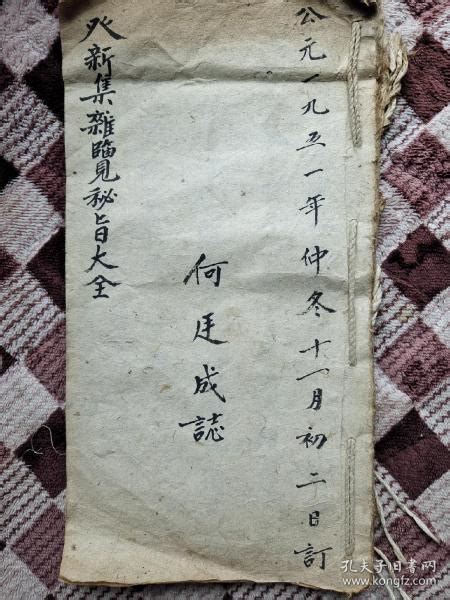 公元一九五一年仲冬十一月初二日訂
何廷成誌
新集雜臨見秘旨大全
孔夫子旧书网
www.kongfz.com